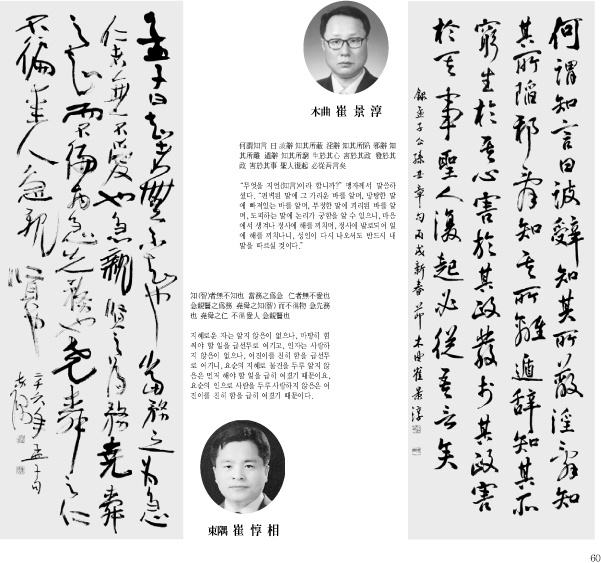 木曲 崔 景 淳
何謂知言 曰 詖辭 知其所蔽 淫辭 知其所陷 邪辭 知
其所離 遁辭 知其所窮 生於其心 害於其政 發於其
政 害於其事 聖人復起 必從吾言矣
"무엇을 지언(知言)이라 합니까?" 맹자께서 말씀하
셨다. "편벽된 말에 그 가리운 바를 알며, 방탕한 말
에 빠져있는 바를 알며, 부정한 말에 괴리된 바를 알
며, 도피하는 말에 논리가 궁함을 알 수 있으니, 마음
에서 생겨나 정사에 해를 끼치며, 정사에 발로되어 일
에 해를 끼치나니, 성인이 다시 나오셔도 반드시 내
말을 따르실 것이다."
何謂知言曰詖辭知其所蔽淫辭知
其所陷邪辭知其所離遁辭知其所
窮生於其心害於其政發於其政害
於其事聖人復起必從吾言矣
錄孟子公孫丑章句 丙戌新春節 木曲崔景淳
知(智)者無不知也 當務之爲急 仁者無不愛也
急親賢之爲務 堯舜之知(智) 而不徧物 急先務
也 堯舜之仁 不徧愛人 急親賢也
지혜로운 자는 알지 않음이 없으나, 마땅히 힘
써야 할 일을 급선무로 여기고, 인자는 사랑하
지 않음이 없으나, 어진이를 친히 함을 급선무
로 여기니, 요순의 지혜로 물건을 두루 알지 않
음은 먼저 해야 할 일을 급히 여겼기 때문이요,
요순의 인으로 사람을 두루 사랑하지 않음은 어
진이를 친히 함을 급히 여겼기 때문이다.
東隅 崔 惇 相
孟子曰知者無不知也當務之爲急
仁者無不愛也急親賢之爲務堯舜
之知而不徧物急先務也堯舜之仁
不徧愛人急親賢也
二千六年孟子句
東隅
60